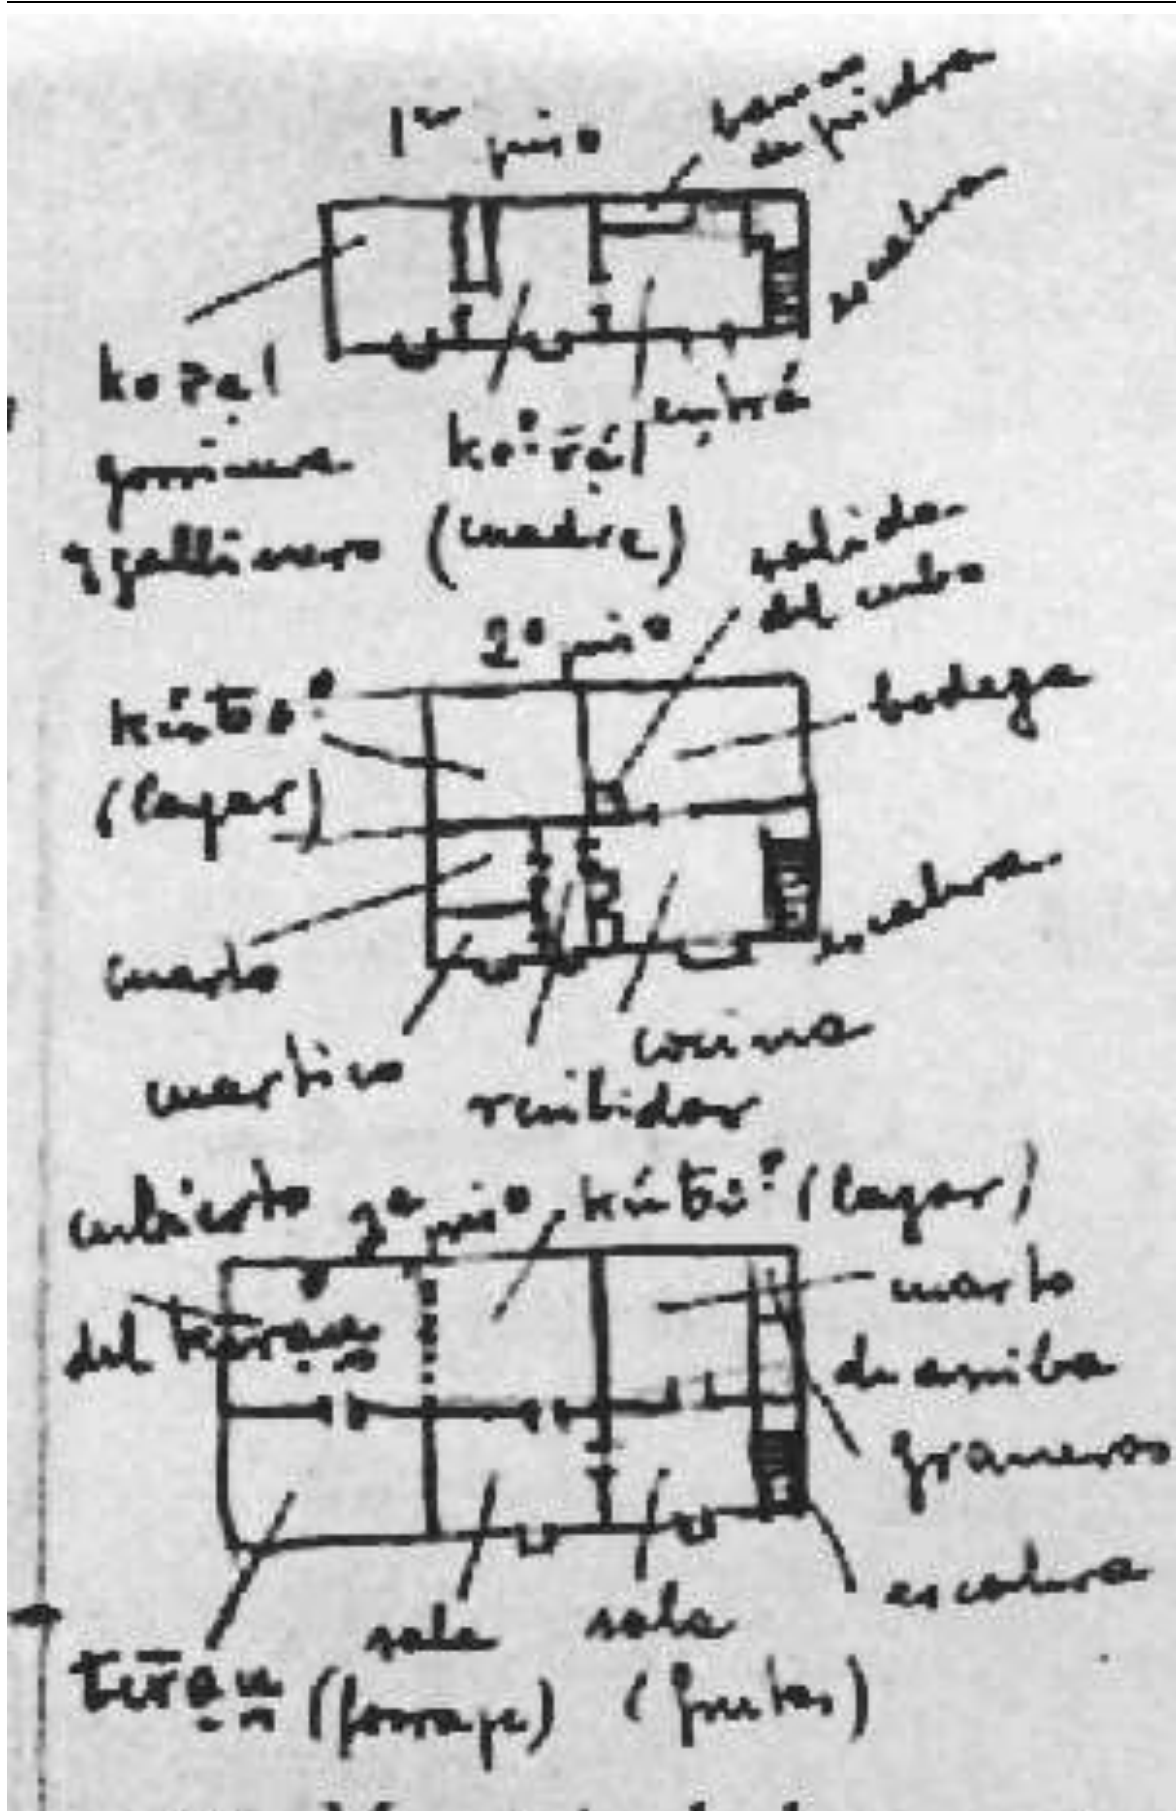 1er piso
banco
de piedra
escalera
koral
gorrinera
y gallinero
korál
(madre)
entrá
2º piso
salida
del cubo
bodega
(lagar)
cuarto
escalera
cuartico
recibidor
cocina
cubierto
3er piso
(lagar)
cuarto
de arriba
del
graneros
escalera
sala
(forraje)
sala
(frutas)